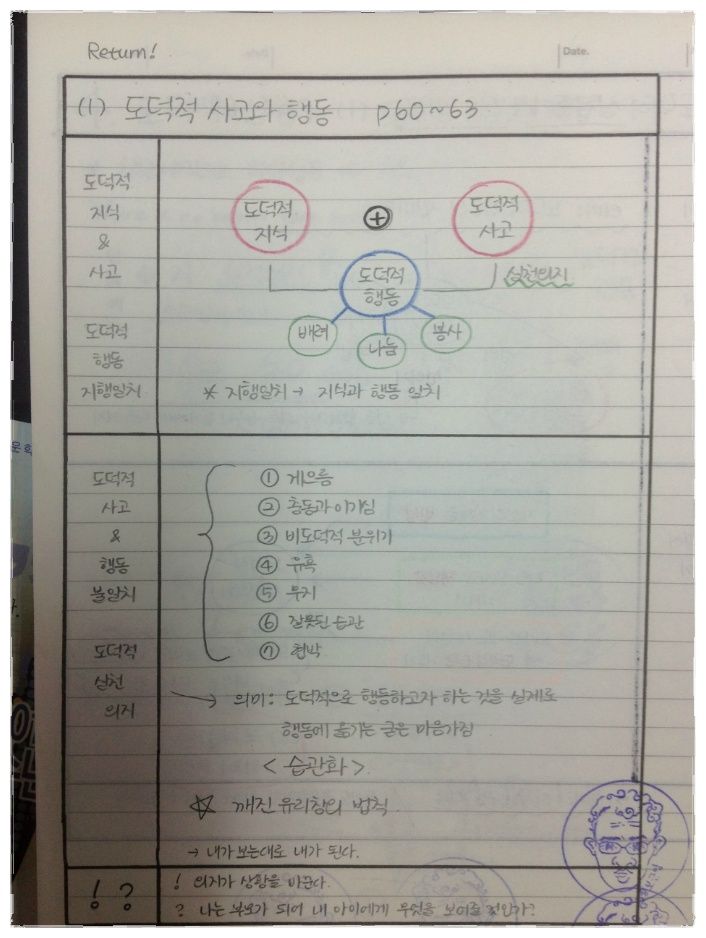 Return!
Date.
(1) 도덕적 사고와 행동 p60~63
도덕적
지식
&
사고
도덕적
행동
지행일치
도덕적
지식
+
도덕적
사고
도덕적
행동
실천의지
배려
나눔
봉사
* 지행일치 → 지식과 행동 일치
도덕적
사고
&
행동
불일치
도덕적
실천
의지
① 게으름
② 충동과 이기심
③ 비도덕적 분위기
④ 유혹
⑤ 무지
⑥ 잘못된 습관
⑦ 협박
→ 의미: 도덕적으로 행동하고자 하는 것을 실제로
행동에 옮기는 굳은 마음가짐
<습관화>
☆ 깨진 유리창의 법칙
→ 내가 보는대로 내가 된다.
! ?
! 의지가 상황을 바꾼다.
? 나는 부모가 되어 내 아이에게 무엇을 보여줄 것인가?